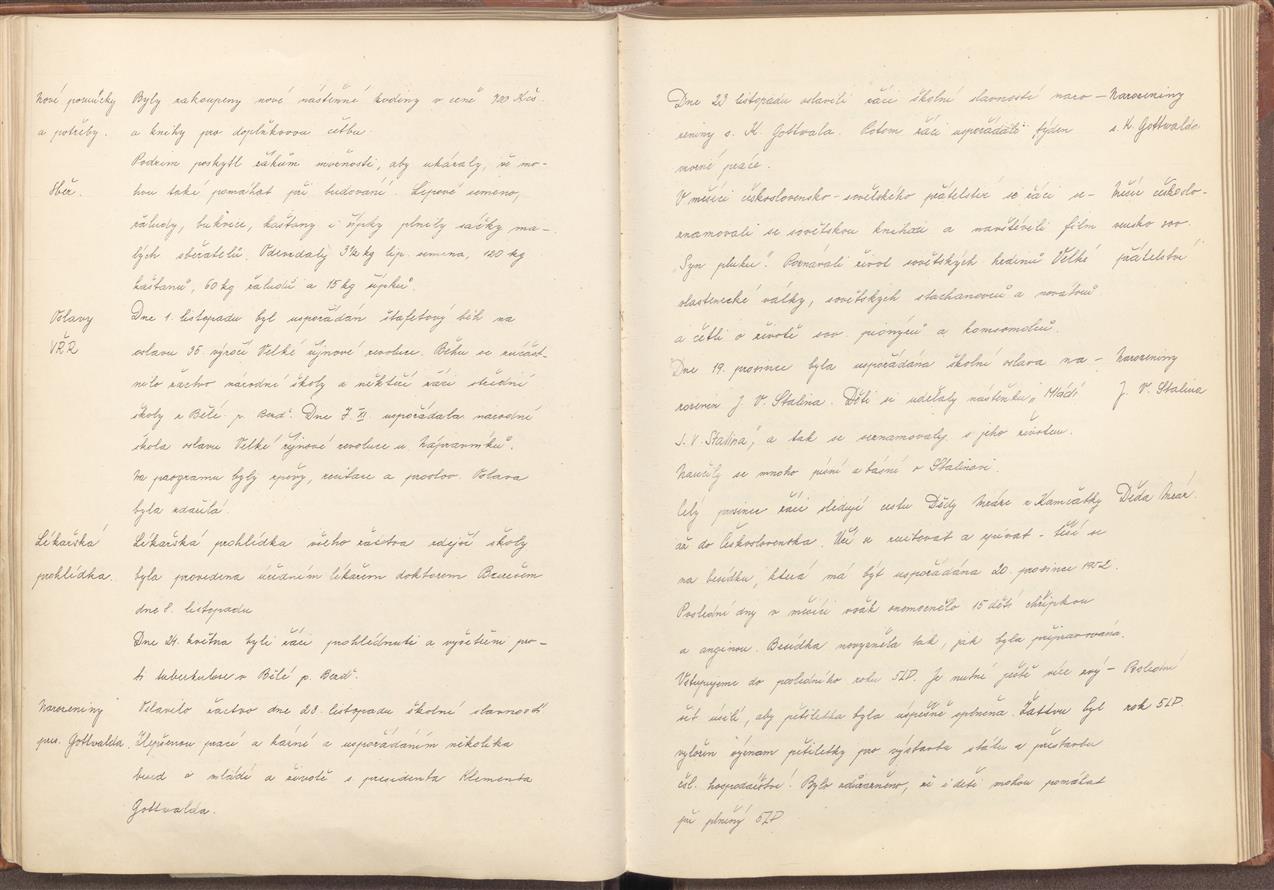 Nové pomůcky Byly zakoupeny nové nástěnné hodiny v ceně 920 Kčs.
a potřeby. a knihy pro doplňkovou četbu.
Podzim poskytl žákům možnosti, aby ukázaly, že mo-
Sběr. hou také pomáhat při budování. Lipové semeno,
žaludy, bukvice, kaštany i šípky plnily sáčky ma-
lých sběratelů. Odevzdaly 3½ kg lip. semena, 120 kg
kaštanů, 60 kg žaludů a 15 kg šípků.
Oslavy Dne 1. listopadu byl uspořádán štafetový běh na
VŘR oslavu 35. výročí Velké říjnové revoluce. Běhu se zúčast-
nilo žactvo národní školy a někteří žáci střední
školy z Bělé p. Bezd. Dne 7. XI. uspořádala národní
škola oslavu Velké říjnové revoluce u Nápravníků.
Na programu byly zpěvy, recitace a proslov. Oslava
byla zdařilá.
Lékařská Lékařská prohlídka všeho žactva zdejší školy
prohlídka. byla provedena úředním lékařem doktorem
dne 8. listopadu
Dne 24. května byli žáci prohlédnuti a vyšetřeni pro-
ti tuberkulose v Bělé p. Bezd.
Narozeniny Oslavilo žactvo dne 23. listopadu školní slavností
pres. Gottwalda. Zlepšenou prací a kázní a uspořádáním několika
besed o mládí a životě s. presidenta Klementa
Gottvalda.
Dne 23 listopadu oslavili žáci školní slavností naro- Narozeniny
zeniny s. K. Gottvala. Potom žáci uspořádáli týden s. K. Gottwalda
vzorné práce.
V měsíci československo-sovětského přátelství se žáci se- Měsíc českoslo-
znamovali se sovětskou knihou a navštívili film vensko sov.
"Syn pluku". Poznávali život sovětských hrdinů Velké přátelství
vlastenecké války, sovětských stachanovců a novátorů
a četli o životě sov. pionýrů a komsomolců.
Dne 19. prosince byla uspořádána školní oslava na- Narozeniny
rozenin J. V. Stalina. Děti si udělaly nástěnku „Mládí J. V. Stalina
J. V. Stalina", a tak se seznamovaly s jeho životem.
Naučily se mnoho písní a básní o Stalinovi.
Celý prosinec žáci sledují cestu Dědy Mráze z Kamčatky Děda Mráz.
až do Československa. Učí se recitovat a zpívat - těší se
na besídku, která má být uspořádána 20. prosince 1952.
Poslední dny v měsíci však onemocnělo 15 dětí chřipkou
a anginou. Besídka nevyzněla tak, jak byla připravována.
Vstupujeme do posledního roku 5LP. Je nutné ještě více zvý- Poslední
šit úsilí, aby pětiletka byla úspěšně splněna. Žactvu byl rok 5LP.
vyložen význam pětiletky pro výstavbu státu a přestavbu
čsl. hospodářství. Bylo zdůrazněno, že i děti mohou pomáhat
při plnění 5LP